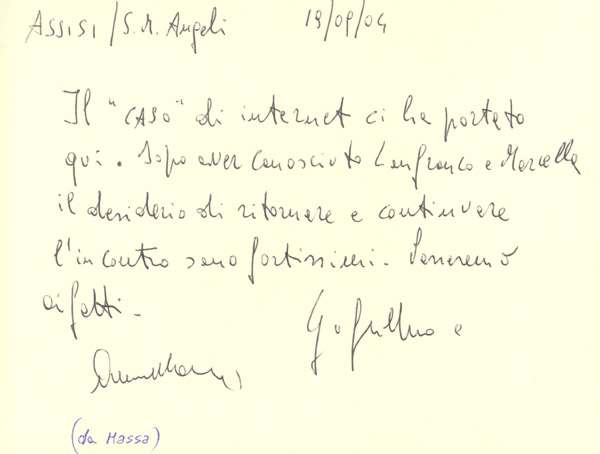 ASSISI / S. M. Angeli 19/09/04
Il "CASO" di internet ci ha portato
qui. Dopo aver conosciuto Lanfranco e Marcella
il desiderio di ritornare e continuare
l'incontro sono fortissimi. Passeremo
ai fatti.
Guglielmo e
(da Massa)